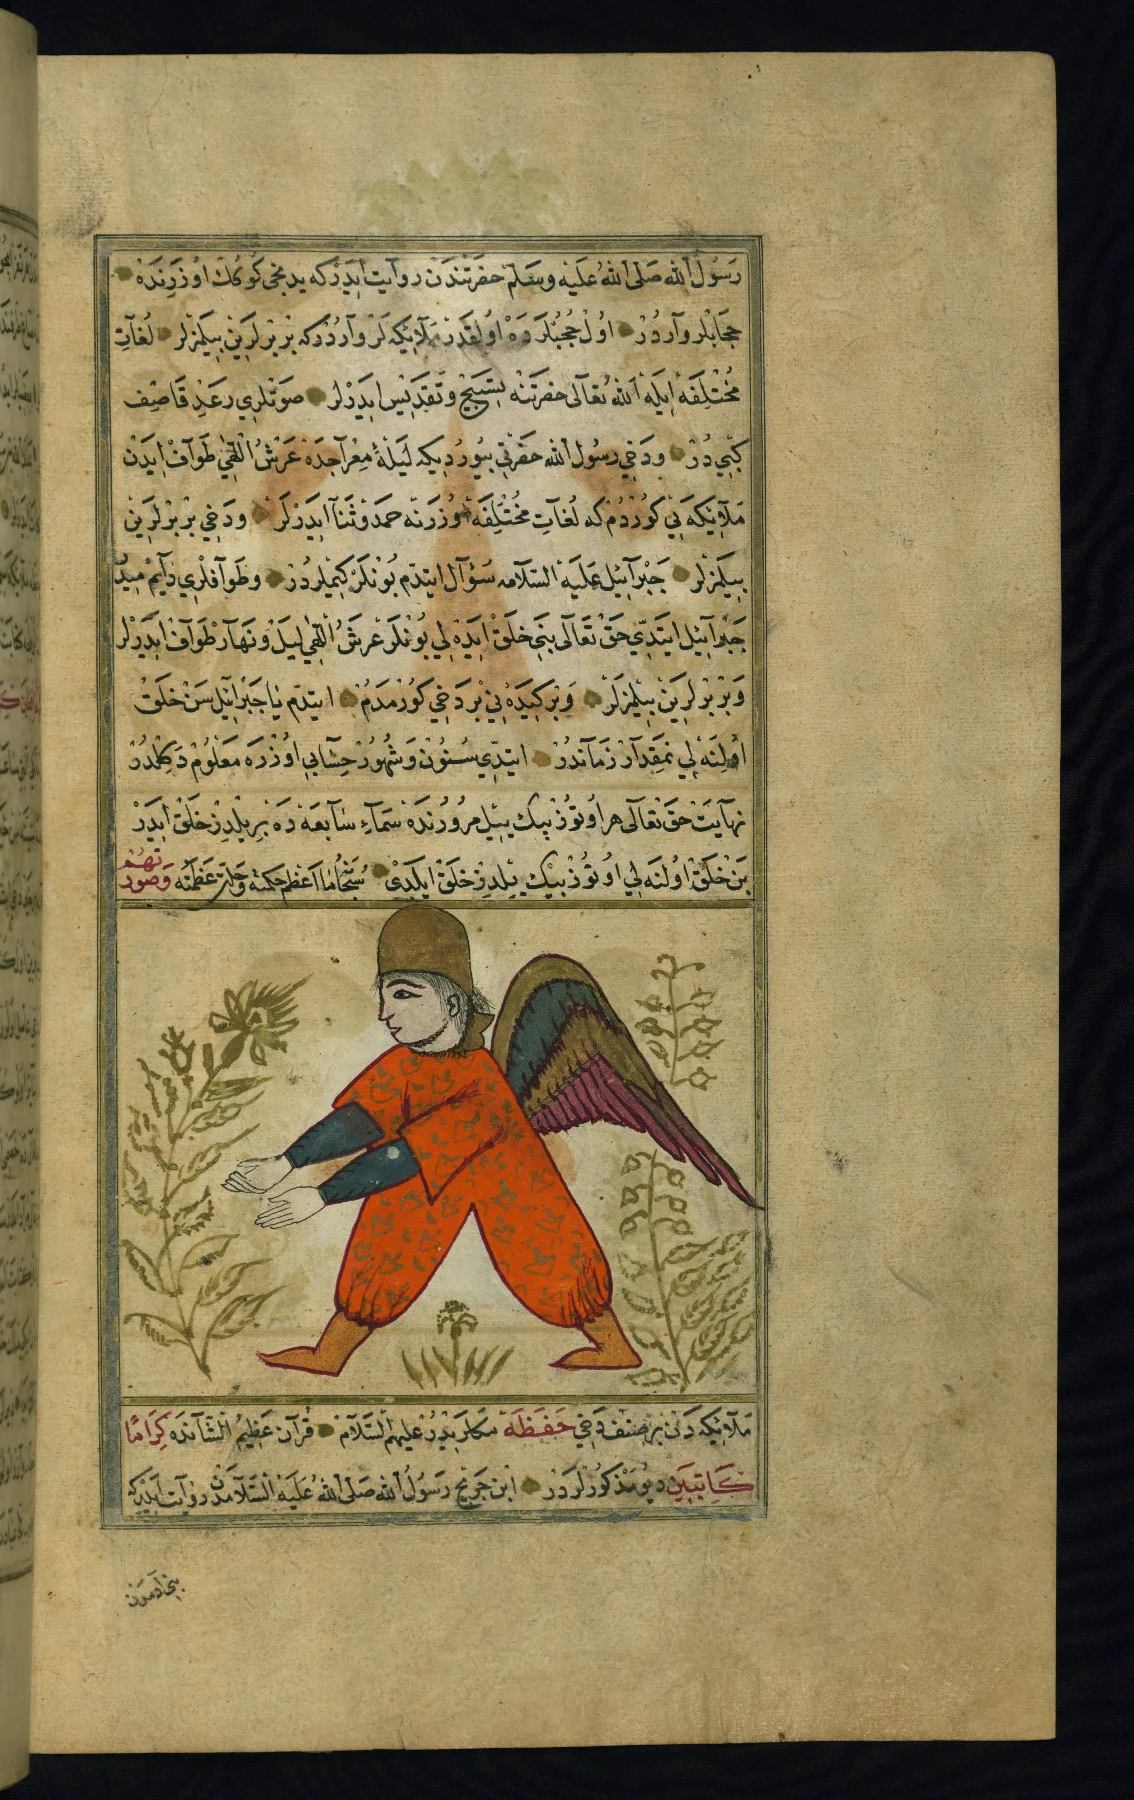 رَسُولُ الله صَلَّى اللهُ عَلَيْهِ وَسَلَّمْ حَضْرَتِنْدَنْ رِوَايَتْ اَيْدَرْ كه يدنجى كُوكُكْ اوُزَرِنْدَهْ
حِجَابْلَر وَارْدُرْ اوُلْ حُجُبْلَرْدَهْ اوُلْقَدَرْ مَلَآئِكَه لَرْ وَارْدُرْ كه بْرْ بْرْلَرِينْ بِيلْمَزْلَر لُغَاتِ
مُخْتَلِفَه اِيلَه الله تَعَالَى حَضْرَتِنَه تَسْبِيحْ وَتَقْدِيسْ اِيدَرْلَر صَوْتْلَرِى رَعَدِ قَاصِفْ
كِبِى دُرْ وَدَخِى رَسُولُ الله حَضْرَتِى بيُورْدِيكه لَيْلَهٔ مِعْرَاجدَهْ عَرْشُ اللّٰهِى طَوَافْ اِيدَنْ
مَلَآئِكَه يِى كُورْدُمْ كه لُغَاتِ مُخْتَلِفَه اوُزَرَنه حَمْد وَثَنَا اِيدَرْلَرْ وَدَخِى بْرْ بْرْلَرِينْ
بِيلْمَزْلَر جَبْرَآئِيل عَلَيْهِ السَّلَامه سُؤَال اِيتدُمْ بُونْلَرْ كِيمْلَرْدُرْ وطَوَافْلَرِى دَآيِمْ مِيدُرْ
جَبْرَآئِيل اِيتْدِى حَقْ تَعَالَى بَنِى خَلَقْ اِيدَهْ لِى بُونْلَرْ عَرْشُ اللّٰهِى لَيْل وَنَهَارْ طَوَافْ اِيدَرْلَر
وَبْرْ بْرْلَرِينْ بِيلْمَزْلَرْ وَبْرْ كِيدَهْ نِى بْرْ دَخِى كُورْمَدُمْ اِيتدُم يَا جَبْرَآئِيل سَنْ خَلَقْ
اُولِنَه لِى نَمِقْدَارْ زَمَانْدُرْ اِيتدِى سُنُونْ وَشُهُورْ حِسَابِى اوُزْرَه مَعْلُومْ دَكِلْدُرْ
نِهَايَتْ حَقْ تَعَالَى هر اوُتُوزْ بِيكْ يِيلْ مُرُورُنْدَه سَمَآءِ سَابِعَه دَه بْرْ يِلْدِزْ خَلَقْ اِيدَرْ
بَنْ خَلَقْ اوُلنَه لِى اوُتُوزْ بِيكْ يِلْدِزْ خَلَقْ ايلَدِى سُبْحَانَ مَا اَعْظَم حِكْمَته وَجَلَّتْ عَظَمَتُه وَصُورَتُهُمْ
مَلَآئِكَه دَنْ بْرْ صِنْف دَخِى حَفَظَه مَلَكلَرِيدُرْ عَلَيْهِمُ السَّلَامْ قُرْآنِ عَظِيمُ الشَّانده كِرَامًا
كَاتِبِينَ دِيُو مَذْكُورْلَردَرْ اِبْنِ جَرِيج رَسُولُ الله صَلَّى اللهُ عَلَيْهِ السَّلَامْدَنْ رِوَايَتْ اَيْدَرْكه
بنى آدمدن